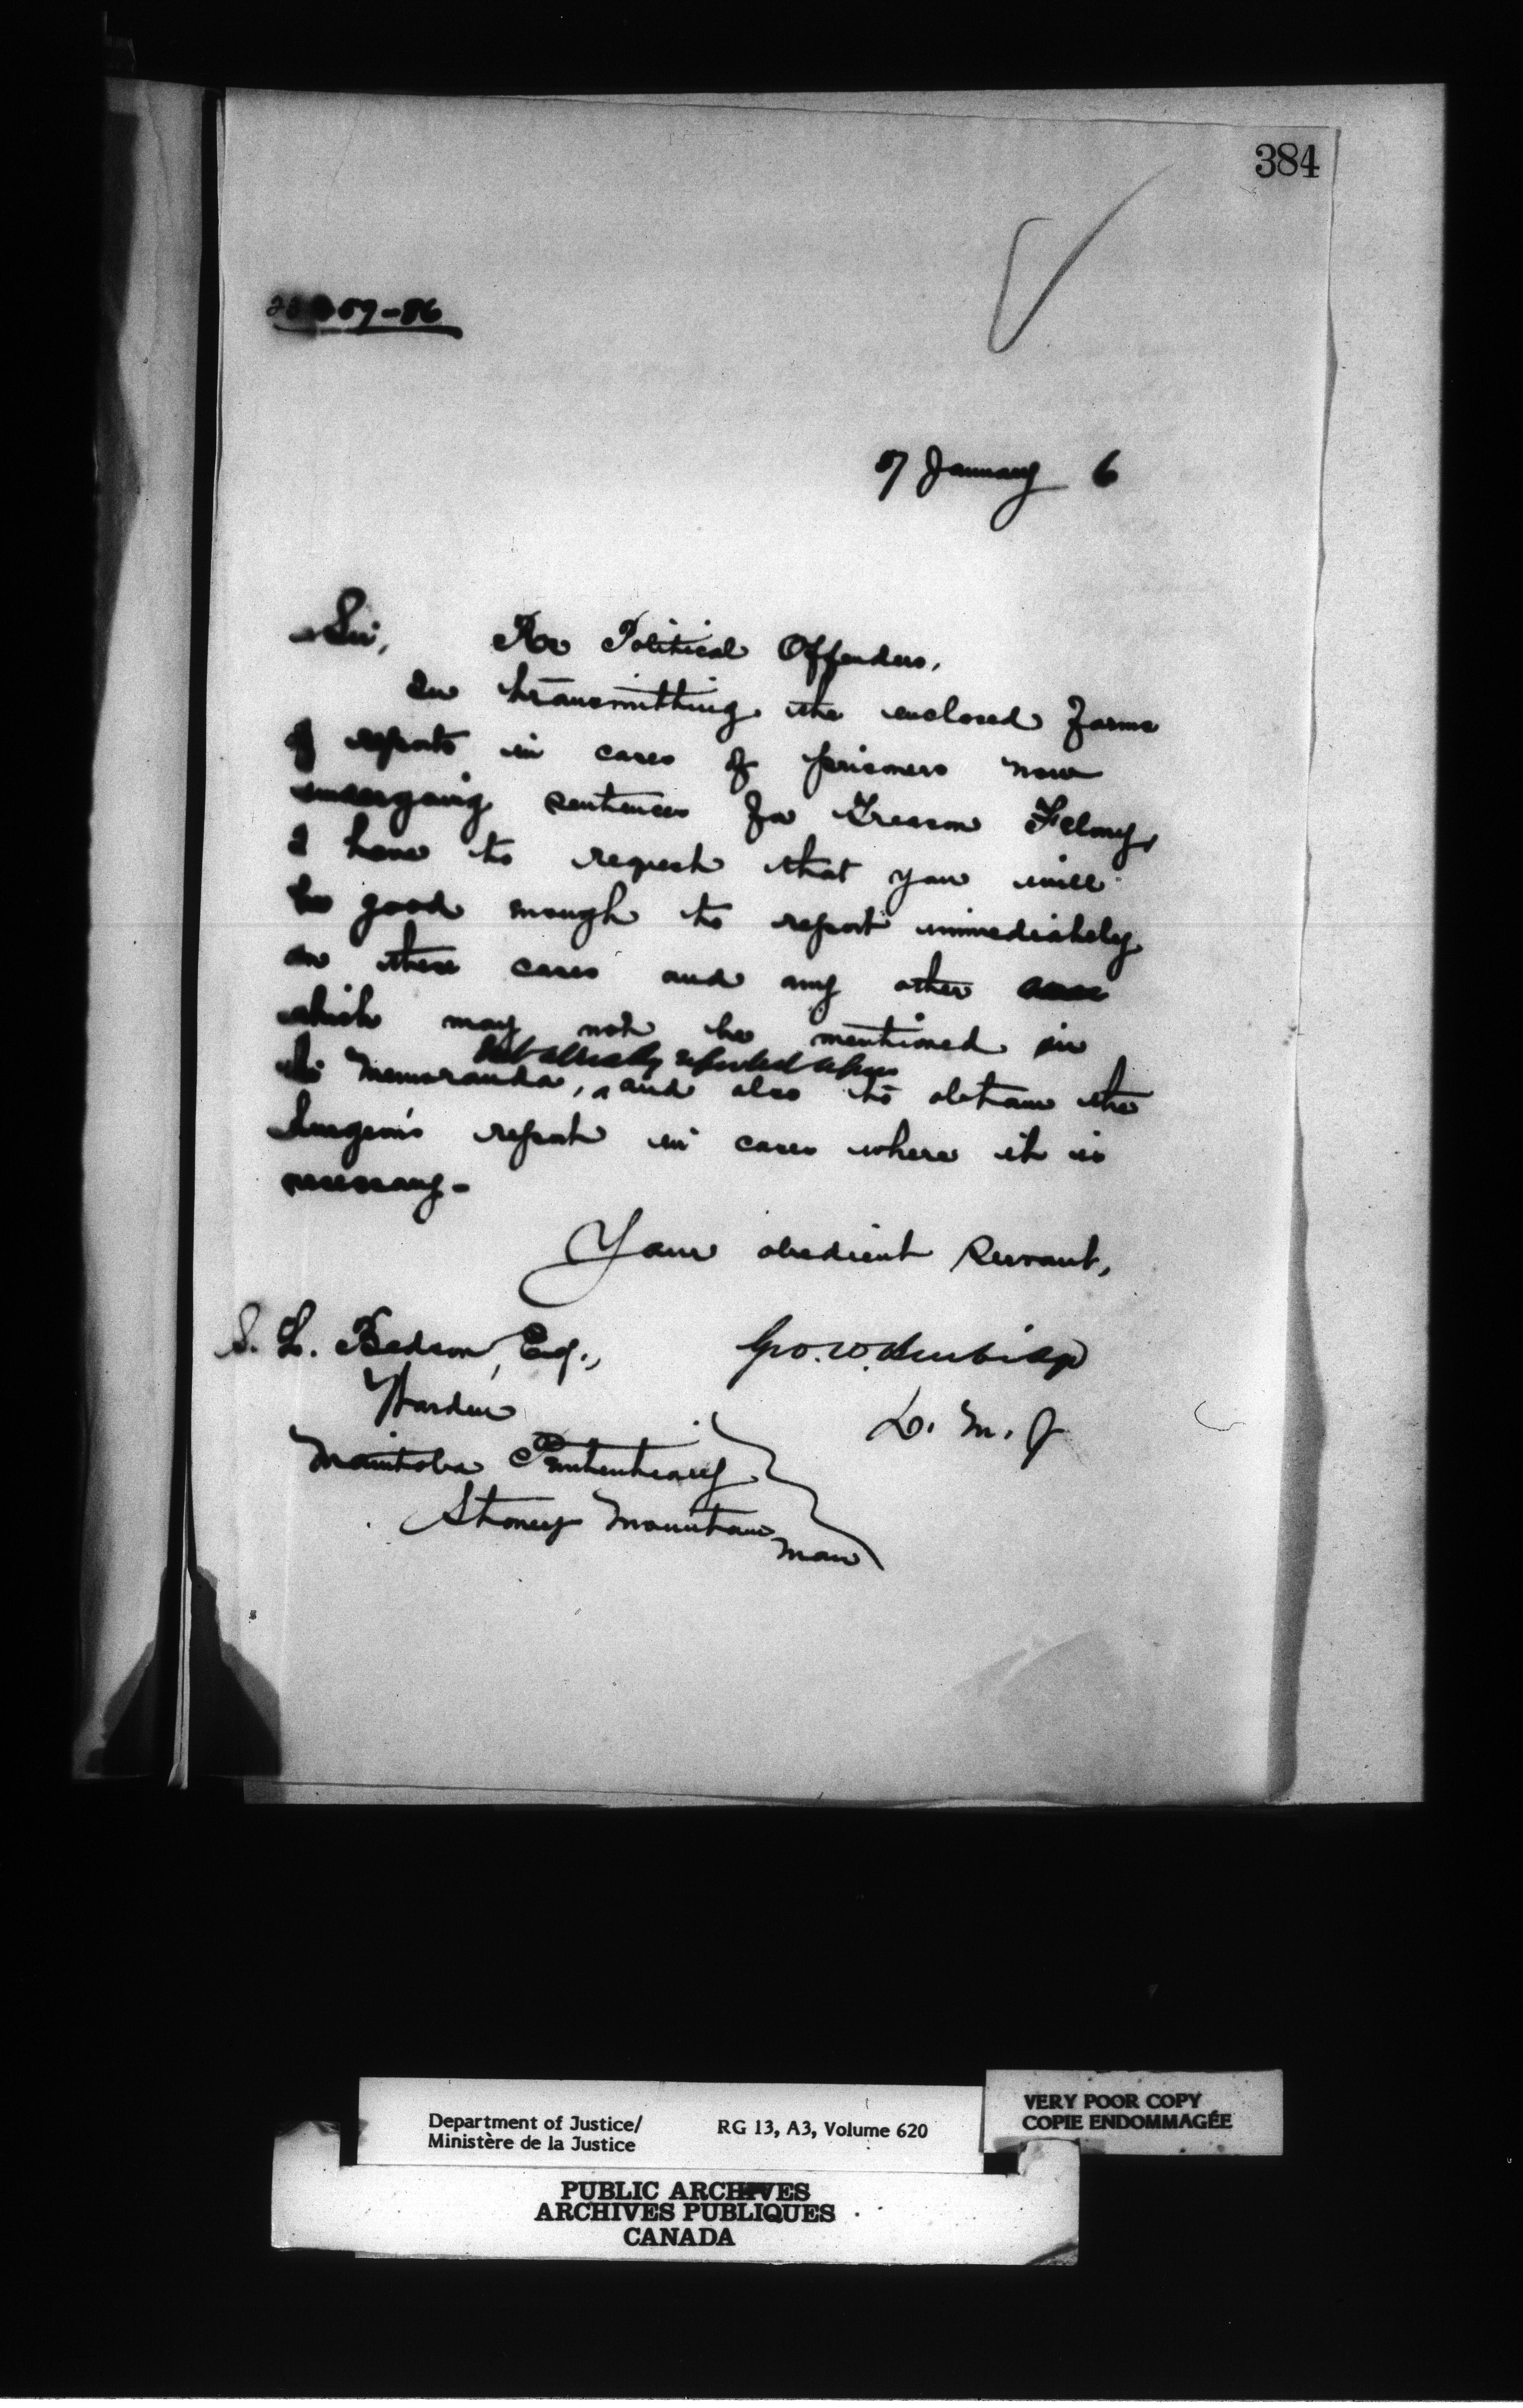 384
7 January 6
Sir, Re Political Offenders,
In transmitting the enclosed forms
of reports in cases of prisoners now
undergoing sentences for Treason Felony,
I have to request that you will
be good enough to report immediately
on these cases and any other
which may not be mentioned in
not already reported upon
the Memoranda, and also to obtain the
Surgeon's report in cases where it is
necessary-
Your obedient Servant,
S. L. Bedson, Esq.,
Geo. W. Burbidge
Warden
D. M. J
Manitoba Penitentiary
Stoney Mountain
Man
Department of Justice/
Ministère de la Justice
RG 13, A3, Volume 620
VERY POOR COPY
COPIE ENDOMMAGÉE
PUBLIC ARCHIVES
ARCHIVES PUBLIQUES
CANADA